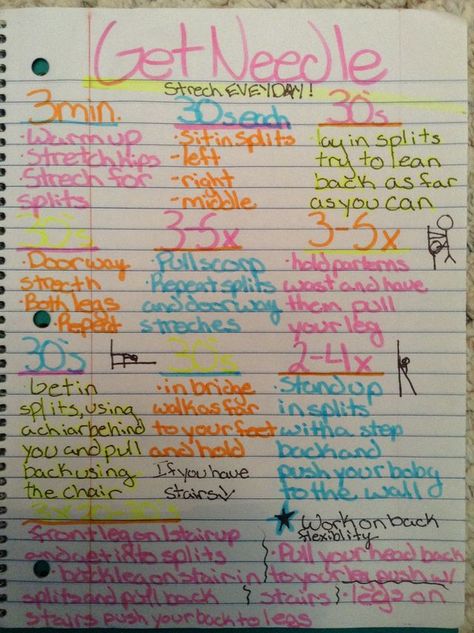 Get Needle
Strech EVERYDAY!
3min.
·Warm up
·Stretch hips
·Strech for
splits
30s each
·Sit in splits
-left
-right
-middle
30's
lay in splits
try to lean
back as far
as you can
30's
·Doorway
strecth
·Both legs
·Repeat
3-5x
·Pull scorp
·Repeat splits
and doorway
streches
3-5x
·hold parterns
wast and have
them pull
your leg
30's
Get in
splits, using
a chiar behind
you and pull
back using
the chair
30's
·in bridge
walk as far
to your feet
and hold
If you have
stairs
2-4x
·Stand up
in splits
with a step
back and
push your baby
to the wall
front leg on 1 stair up
and get into splits
·back leg on stair in
splits and pull back
stairs push your back to legs
Work on back
flexiblity
·Pull your head back
to your
stairs
legs on